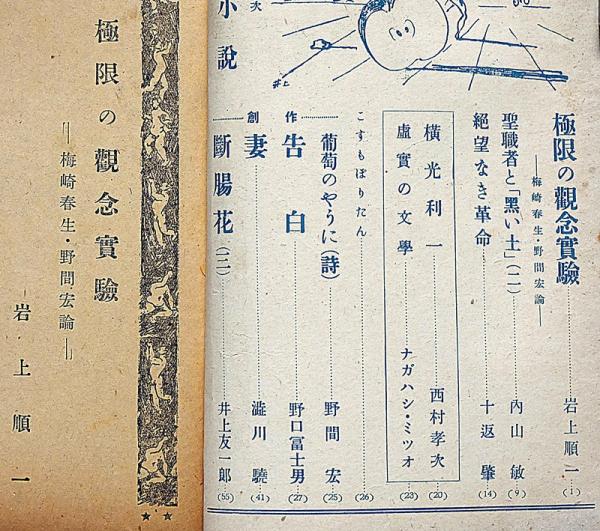 小說
次
井上
極限の觀念實驗
―梅崎春生・野間宏論―
岩上順一(1)
聖職者と「黑い土」(二)
內山敏(9)
絕望なき革命
十返肇(14)
橫光利一
西村孝次(20)
虛實の文學
ナガハシ・ミツオ(23)
こすもぽりたん(26)
葡萄のやうに(詩)
野間宏(25)
創作
告白
野口冨士男(27)
妻
澁川驍(41)
斷腸花(二)
井上友一郎(55)
極限の觀念實驗
―梅崎春生・野間宏論―
岩上順一